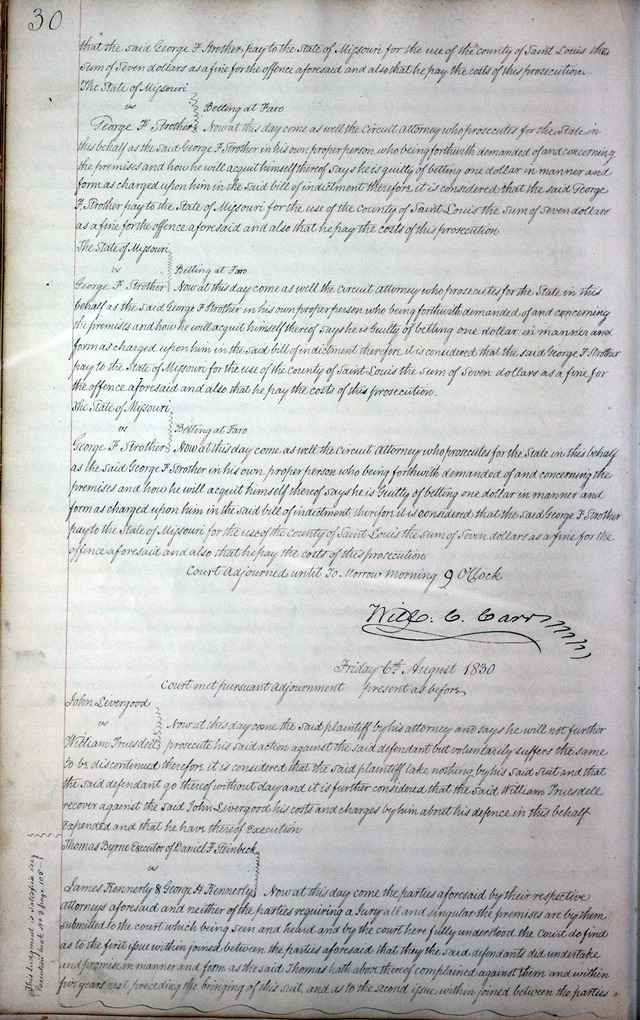 30
that the said George F Strother pay to the State of Missouri for the use of the county of Saint Louis the
Sum of Seven dollars as a fine for the offence aforesaid and also that he pay the costs of this prosecution.
The State of Missouri
vs Betting at Faro
George F Strother Now at this day come as well the Circuit Attorney who prosecutes for the State in
this behalf as the said George F Strother in his own proper person who being forthwith demanded of and concerning
the premises and how he will acquit himself thereof Says he is guilty of betting one dollar in manner and
form as charged upon him in the Said bill of indictment therefore it is considered that the said George
F. Strother pay to the State of Missouri for the use of the County of Saint Louis the Sum of Seven dollars
as a fine for the offence aforesaid and also that he pay the costs of this prosecution
The State of Missouri
vs Betting at Faro
George F Strother Now at this day come as well the Circuit Attorney who prosecutes for the State in this
behalf as the said George F Strother in his own proper person who being forthwith demanded of and concerning
the premises and how he will acquit himself thereof says he is Guilty of betting one dollar in manner and
form as charged upon him in the said bill of indictment therefore it is considered that the said George F Strother
pay to the State of Missouri for the use of the county of Saint Louis the Sum of Seven dollars as a fine for
the offence aforesaid and also that he pay the costs of this prosecution.
The State of Missouri
vs Betting at Faro
George F Strother Now at this day come as well the Circuit Attorney who prosecutes for the State in this behalf
as the said George F Strother in his own proper person who being forthwith demanded of and concerning the
premises and how he will acquit himself thereof Says he is Guilty of betting one dollar in manner and
form as charged upon him in the Said bill of indictment therefore it is considered that the said George F Strother
pay to the State of Missouri for the use of the County of Saint Louis the Sum of Seven dollars as a fine for the
offence aforesaid and also that he pay the costs of this prosecution
Court Adjourned until To Morrow Morning 9 OClock
Will. C. Carr
Friday 6th August 1830
Court met pursuant Adjournment present as before
John Livergood
vs Now at this day come the Said plaintiff by his attorney and says he will not further
William Truesdell prosecute his Said action against the said defendant but voluntarily suffers the same
to be discontinued therefore it is considered that the Said plaintiff take nothing by his Said Suit and that
the Said defendant go thereof without day and it is further considered that the Said William Truesdell
recover against the Said John Livergood his costs and charges by him about his defence in this behalf
expended and that he have thereof Execution
Thomas Byrne Executor of Daniel F Steinbeck
vs
James Kennerly & George H Kennerly Now at this day come the parties aforesaid by their respective
attorneys aforesaid and neither of the parties requiring a Jury all and singular the premises are by them
submitted to the court which being Seen and heard and by the court here fully understood the Court do find
as to the first issue within joined between the parties aforesaid that they the Said defendants did undertake
and promise in manner and form as the said Thomas hath above thereof complained against them and within
five years next preceding the bringing of this suit, and as to the second issue within joined between the parties
This Judgment is Satisfied See